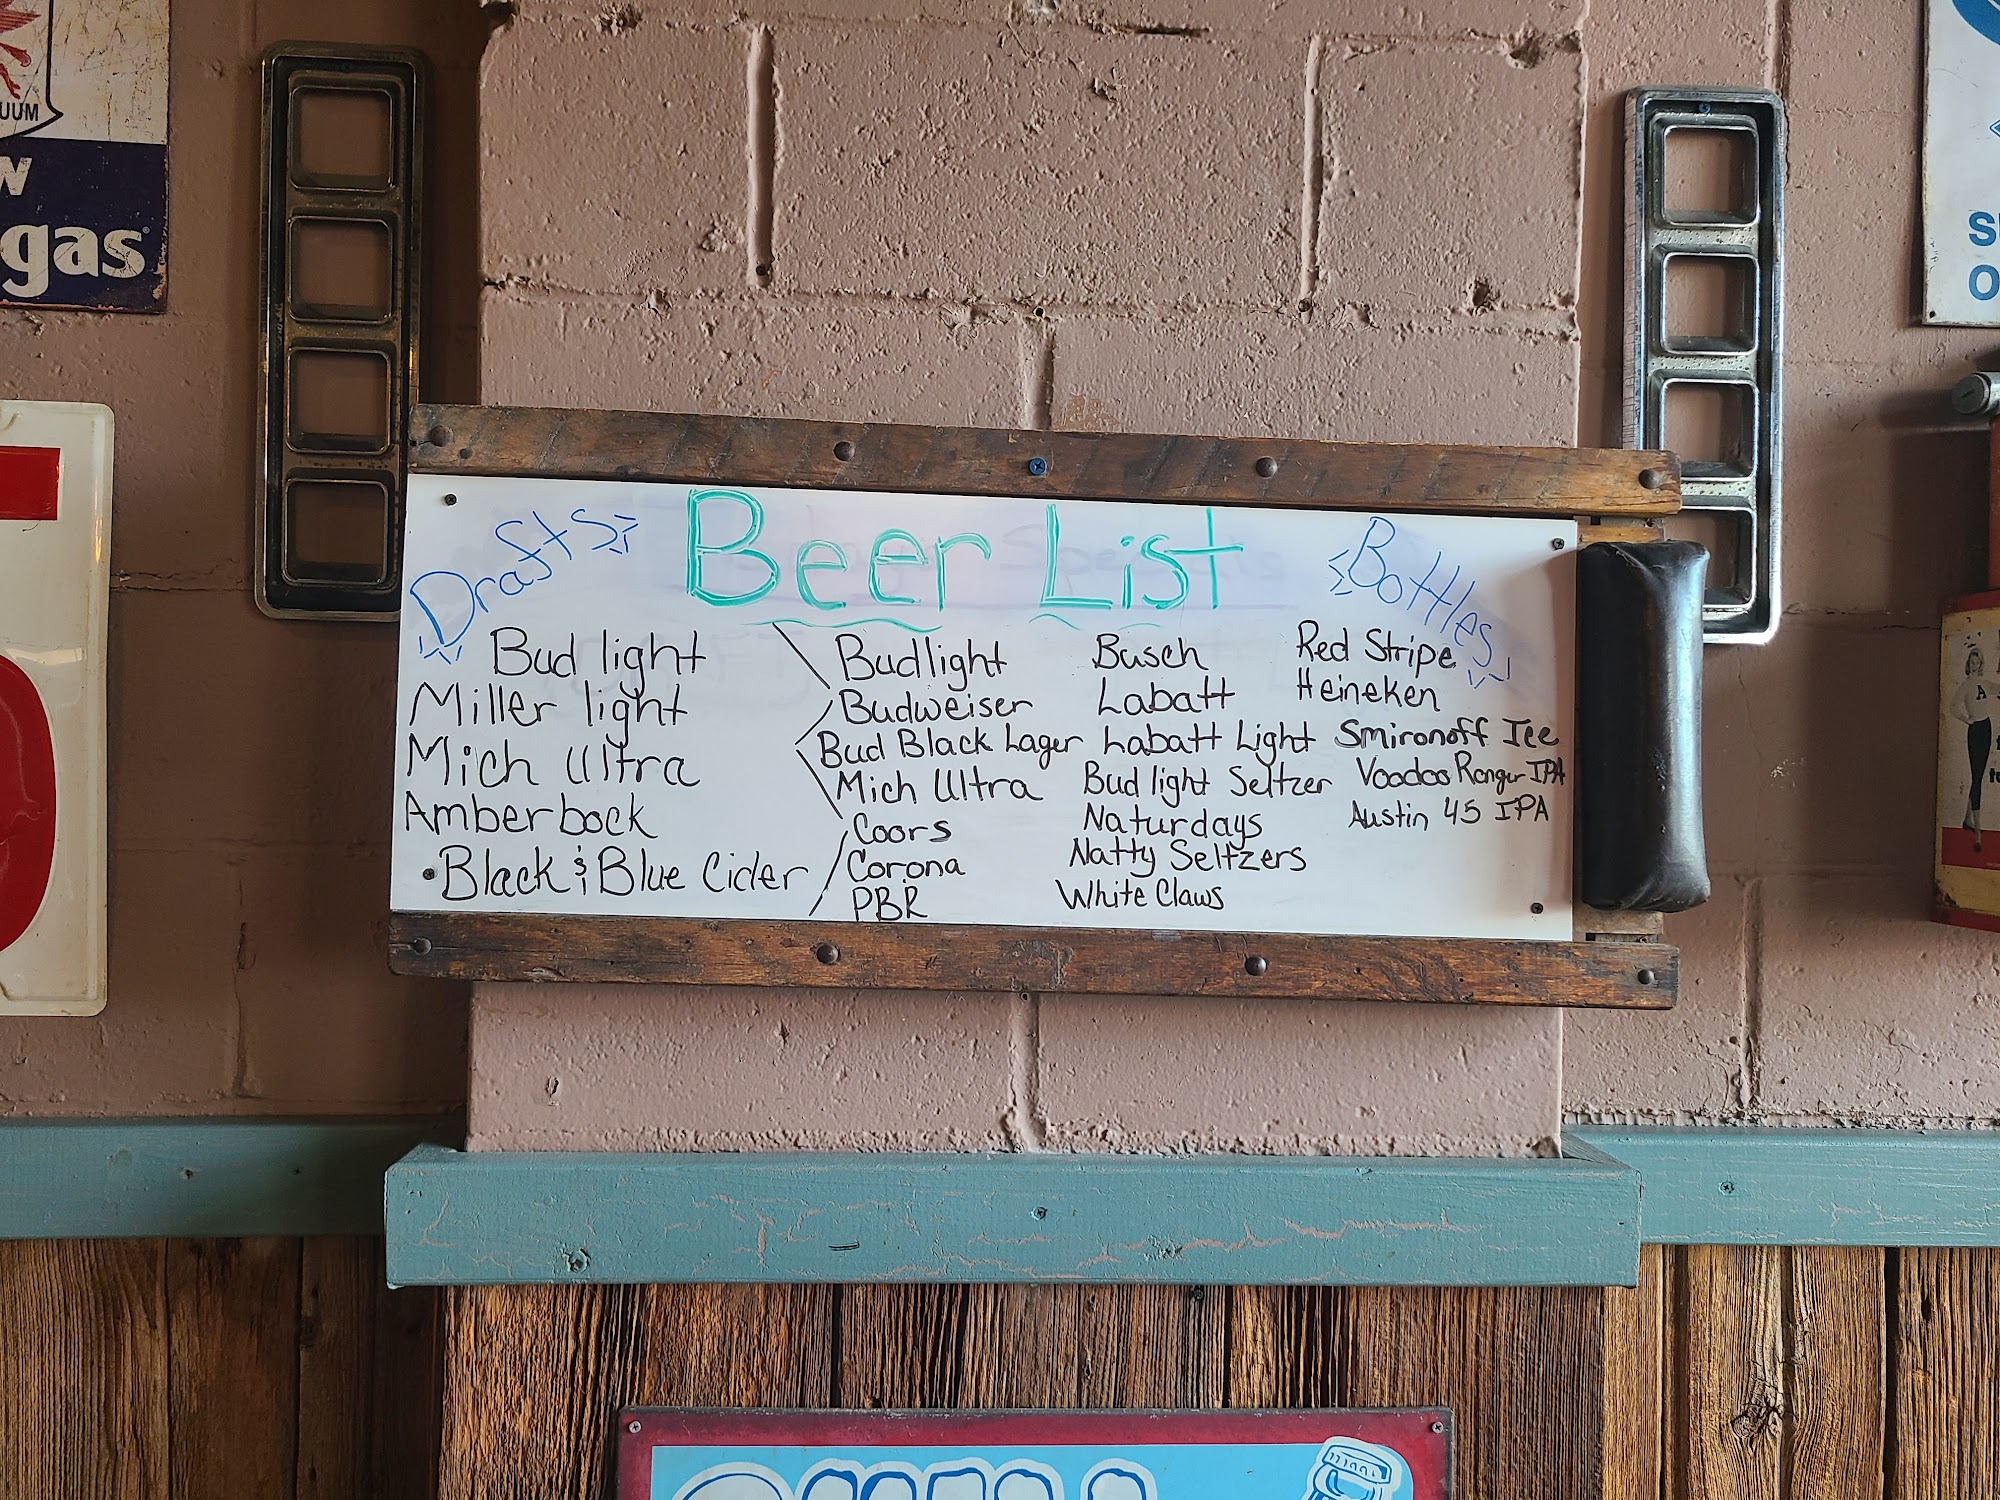 UUM
w
gas
S
O
Beer List
Drafts
Bud light
Miller light
Mich Ultra
Amberbock
Black & Blue Cider
Bottles
Budlight
Budweiser
Bud Black Lager
Mich Ultra
Coors
Corona
PBR
Busch
Labatt
Labatt Light
Bud light Seltzer
Naturdays
Natty Seltzers
White Claws
Red Stripe
Heineken
Smironoff Ice
Voodoo Ranger IPA
Austin 45 IPA